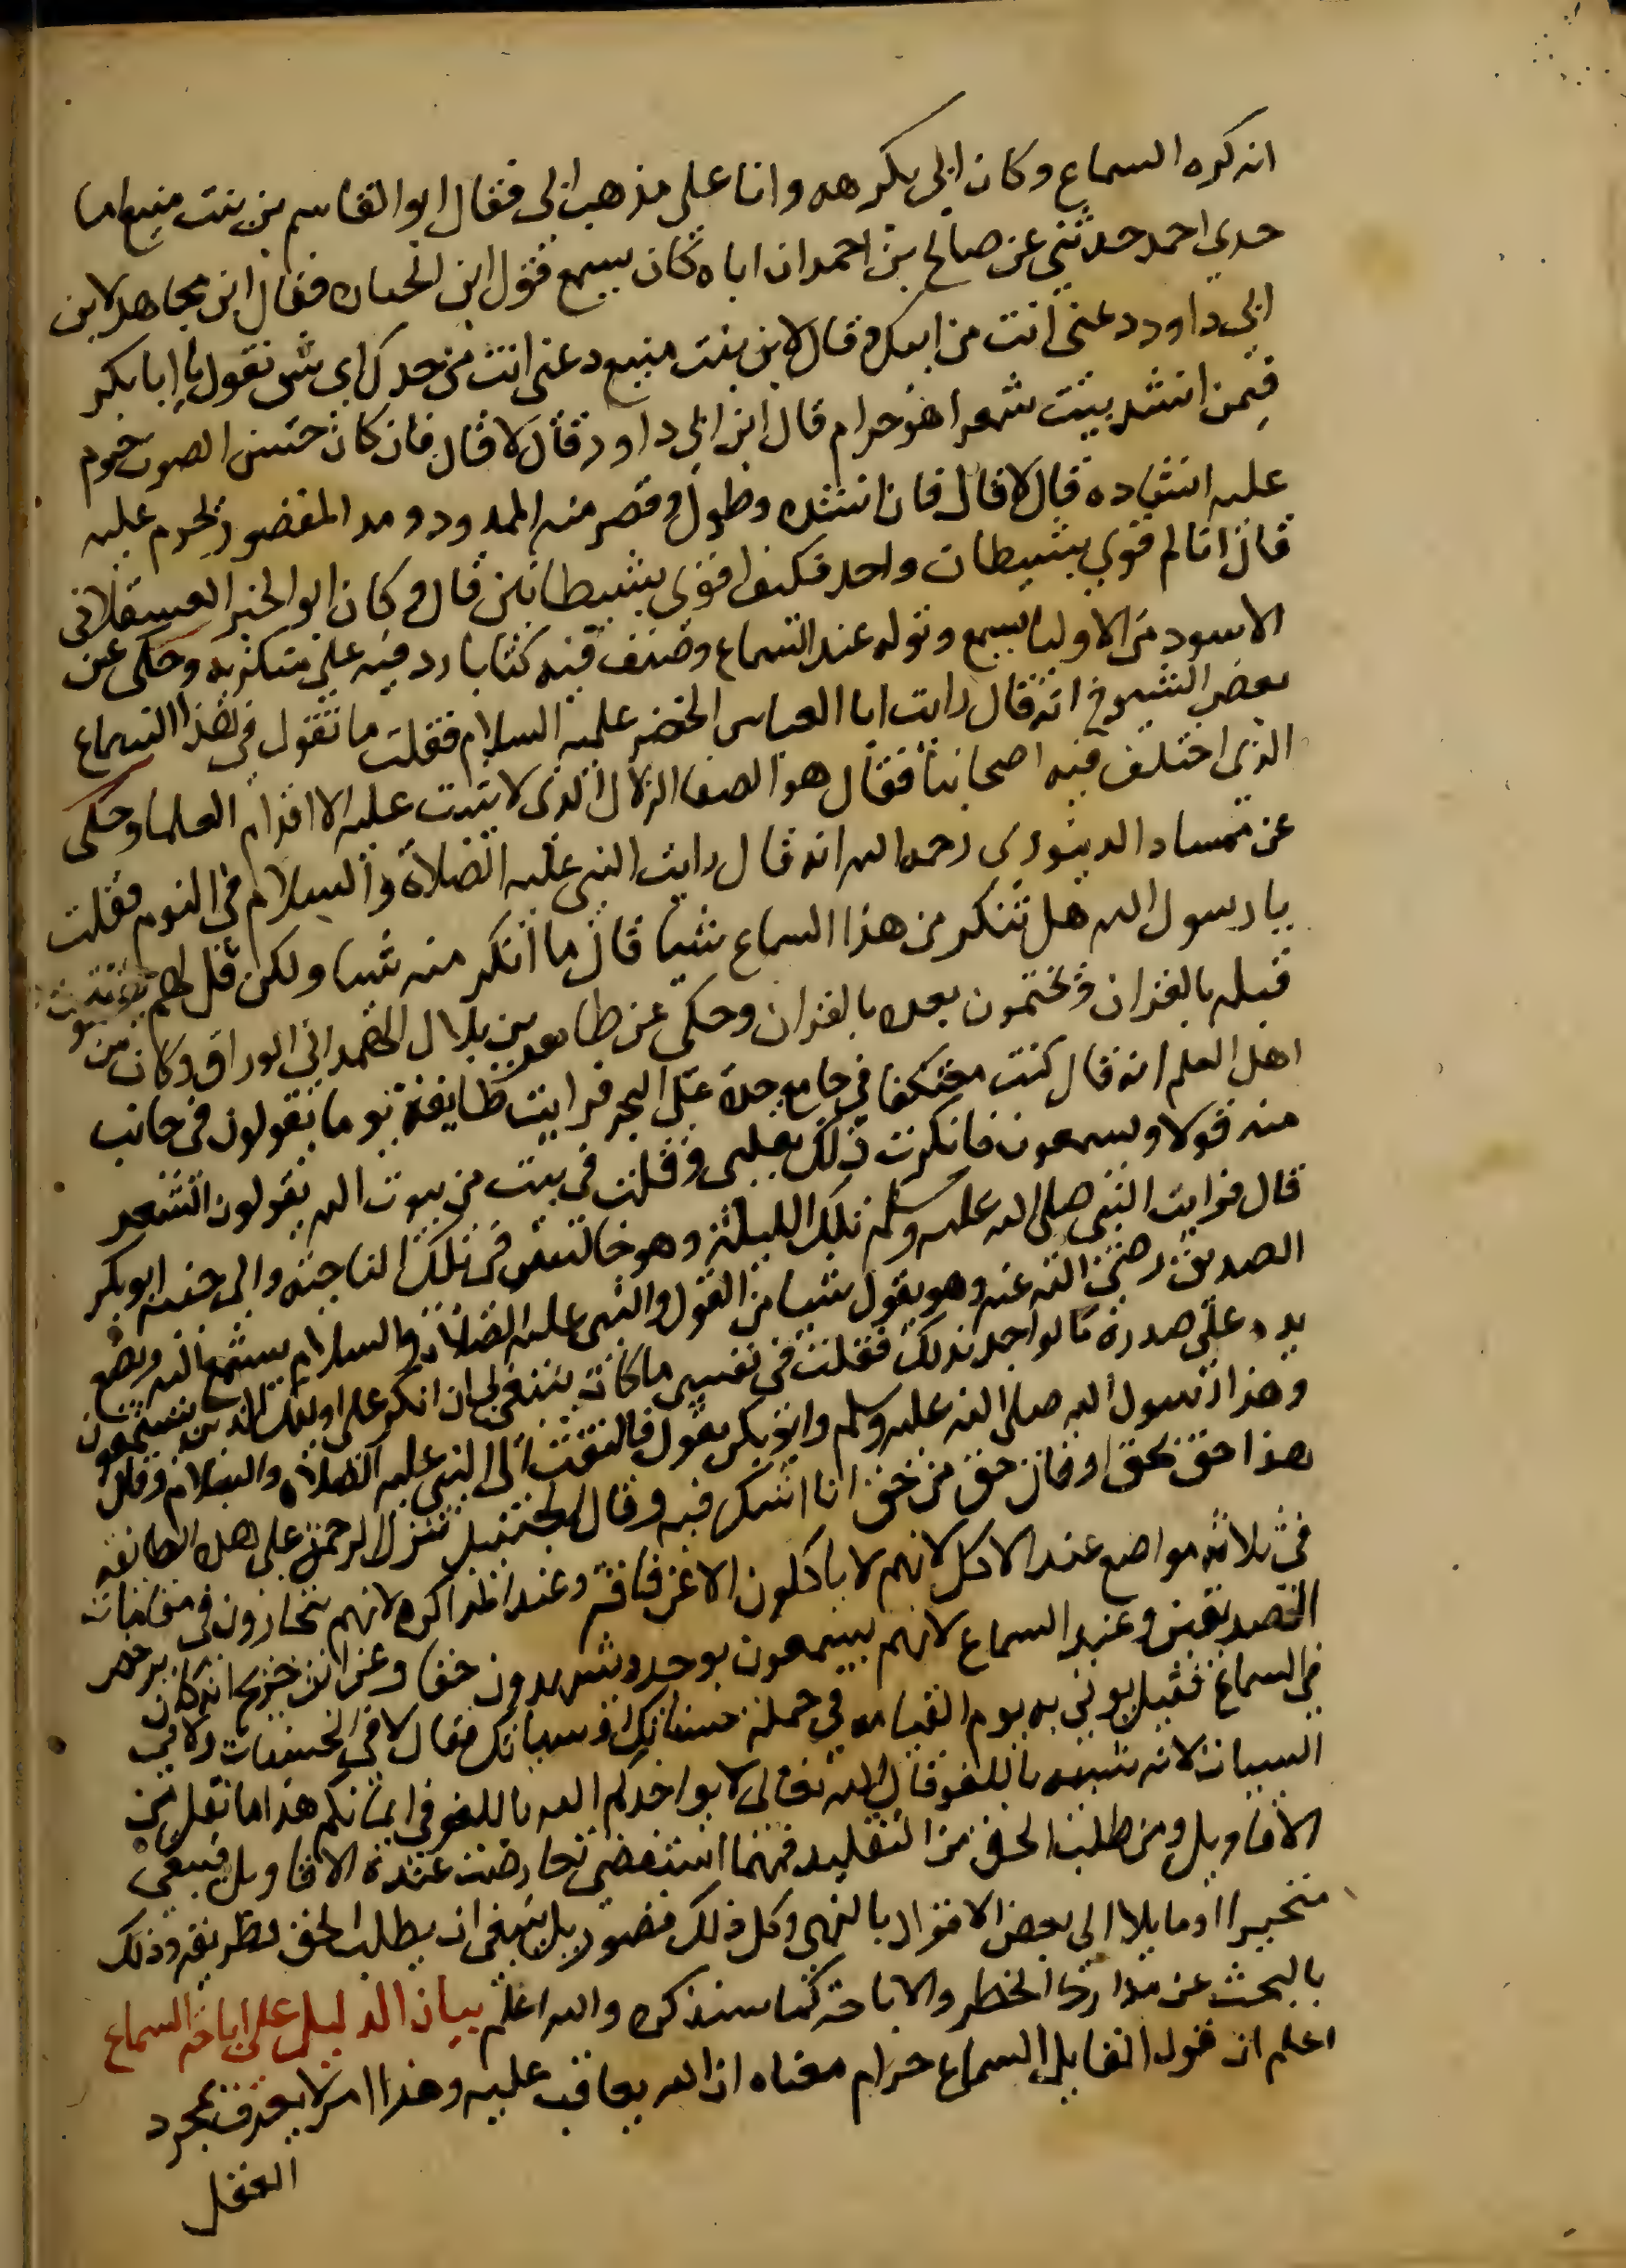 انه كره السماع وكان ابى يكرهه وانا على مذهب ابى فقال ابو القاسم بن بنت منيع اما
جدى احمد حدثنى عن صالح بن احمد ان اباه كان يسمع قول ابن الخباره فقال ابن مجاهد لابن
ابى داود دعنى انت من ابيك وقال لابن بنت منيع دعنى انت من جدك اى شى تقول يا ابا بكر
فيمن انشد بيت شعر اهو حرام قال ابن ابى داود قال لا قال فان كان حسن الصوت حرم
عليه انشاده قال لا قال فان انشده وطول وقصر منه الممدود ومد المقصور ايحرم عليه
قال انا لم اقوى بشيطان واحد فكيف اقوى بشيطانين قال وكان ابو الخير العسقلانى
الاسود من الاوليا يسمع ويوله عند السماع وصنف فيه كتابا رد فيه على منكريه وحكى عن
بعض الشيوخ انه قال رايت ابا العباس الخضر عليه السلام فقلت ما تقول فى هذا السماع
الذى اختلف فيه اصحابنا فقال هو الصفا الزلال الذى لا تثبت عليه الا اقدام العلما وحكى
عن ممساد الدينورى رحمه الله انه قال رايت النبى عليه الصلاة والسلام فى النوم فقلت
يا رسول الله هل تنكر من هذا السماع شيا قال ما انكر منه شيا ولكن قل لهم يفتتحون
قبله بالقران ويختمون بعده بالقران وحكى عن طاهر بن بلال الهمدانى الوراق وكان من
اهل العلم انه قال كنت معتكفا فى جامع جدة على البحر فرايت طايفة يوما يقولون فى جانب
منه قولا ويسمعون فانكرت ذلك بقلبى وقلت فى بيت من بيوت الله يقولون الشعر
قال فرايت النبى صلى الله عليه وسلم تلك الليلة وهو جالس فى تلك الناحية والى جنبه ابو بكر
الصديق رضى الله عنه وهو يقول شيا من القول والنبى عليه الصلاة والسلام يستمع اليه ويضع
يده على صدره كالواجد بذلك فقلت فى نفسى ما كان ينبغى لى ان انكر على اوليك الذين يستمعون
وهذا رسول الله صلى الله عليه وسلم وابو بكر يقول فالتفت الى النبى عليه الصلاة والسلام وقال
هذا حق بحق او قال حق من حق انا اشك فيه وقال الجنيد تنزل الرحمة على هذه الطايفة
فى ثلاثة مواضع عند الاكل لانهم لا ياكلون الا عن فاقة وعند المذاكره لانهم يتحازون فى مقامات
الصديقين وعند السماع لانهم يسمعون بوجد ويشهدون حقا وعن ابن جريج انه كان يرخص
فى السماع فقيل يوتى به يوم القيامه فى جملة حسناتك او سياتك فقال لا فى الحسنات ولا فى
السيات لانه شبيه باللغو قال الله تعالى لا يواخذكم الله باللغو فى ايمانكم هذا ما نقل من
الاقاويل ومن طلب الحق من التقليد فمهما استقصى تعارضت عنده الاقاويل فيبقى
متحيرا او مايلا الى بعض الاقوال بالتهى وكل ذلك قصور بل ينبغى ان يطلب الحق بطريقه وذلك
بالبحث عن مدارك الحظر والاباحة كما سنذكره والله اعلم بيان الدليل على اباحة السماع
اعلم ان قول القايل السماع حرام معناه ان الله يعاقب عليه وهذا امر لا يعرف بمجرد
العقل